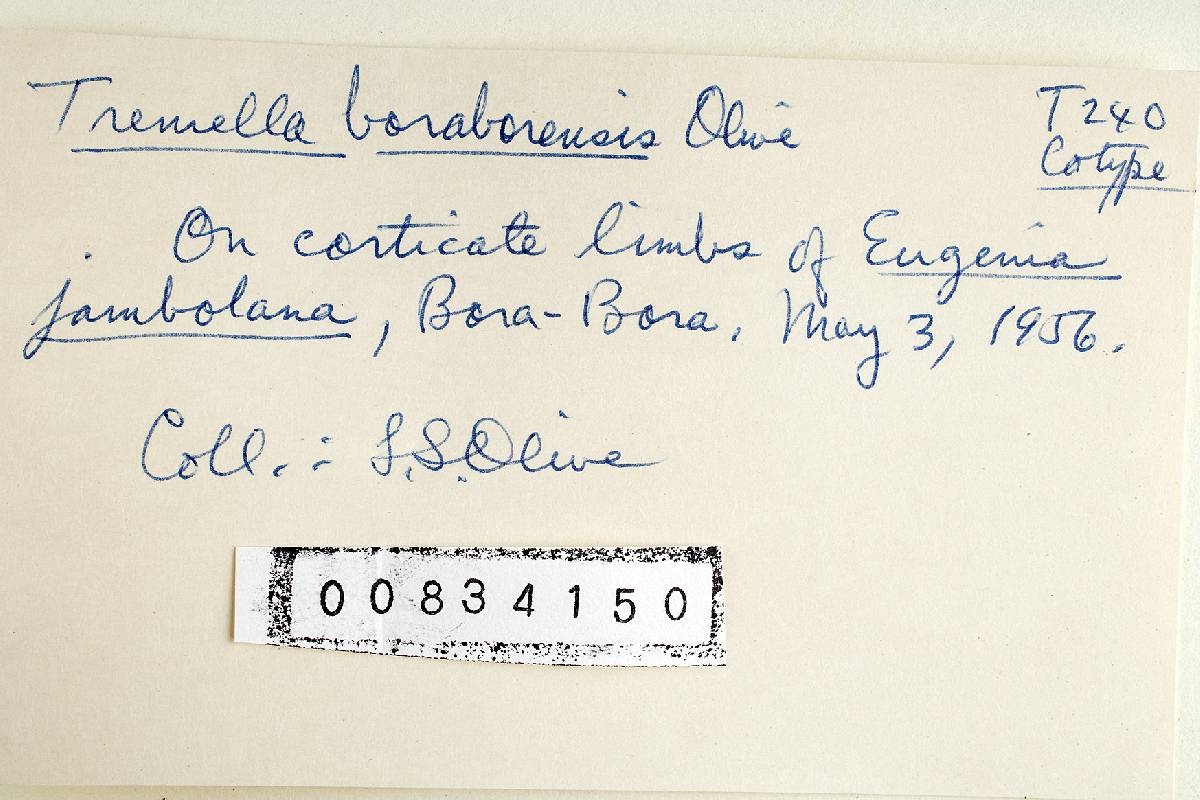 Tremella boraborensis Olive
T240
Cotype
On corticate limbs of Eugenia
jambolana, Bora-Bora, May 3, 1956.
Coll.: L.S. Olive
00834150